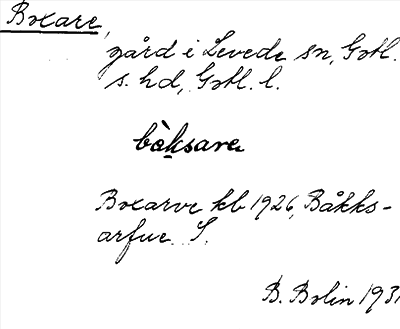 Boxare,
gård i Levede sn, Gotl.
s. hd, Gotl. l.
bòksare
Boxarve kb 1926, Båkks-
arfue S.
B. Bolin 1931